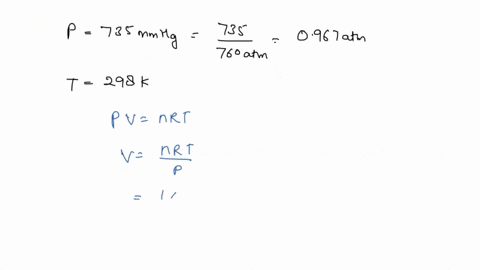 P = 735 mmHg = 735/760 atm = 0.967 atm
T = 298 K
PV = nRT
V = nRT/P
= 1